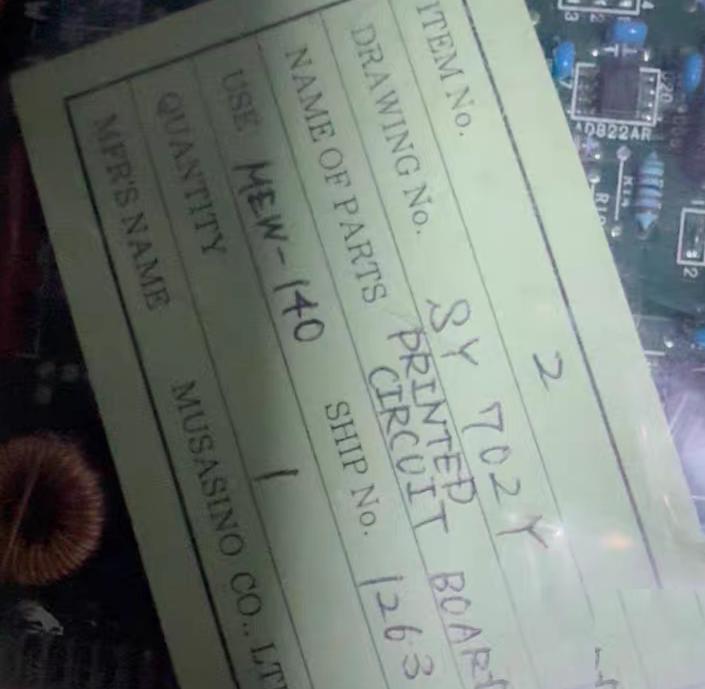 ITEM No. 2
DRAWING No. SY 702Y
NAME OF PARTS PRINTED CIRCUIT BOARD
USE MEW-140 SHIP No. 1263
QUANTITY 1
MFR'S NAME MUSASINO CO., LT
AD822AR